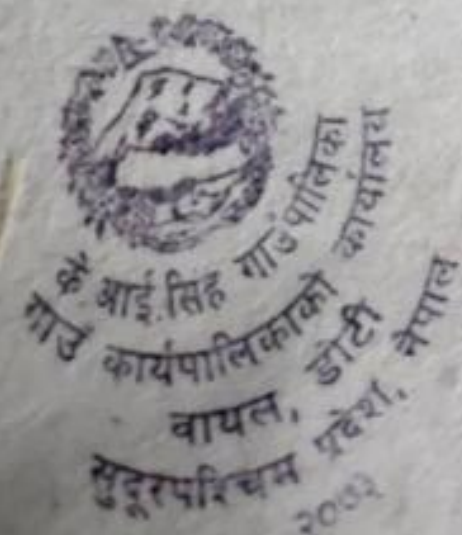 के.आई.सिंह गाउँपालिका
गाउँ कार्यपालिकाको कार्यालय
वायल, डोटी
सुदूरपश्चिम प्रदेश, नेपाल
२०७३